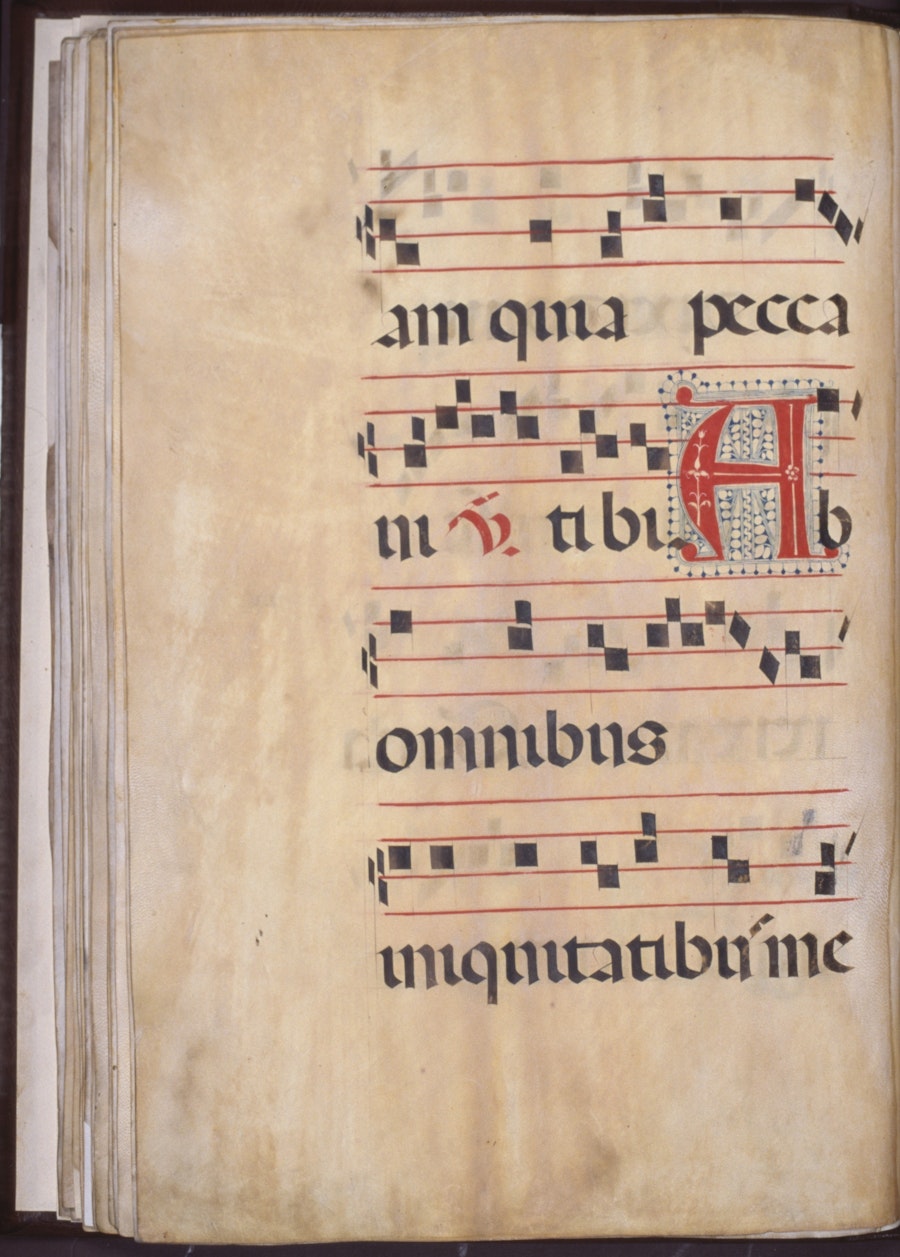 am quia pecca
ui ℣. tibi Ab
omnibus
iniquitatibus me